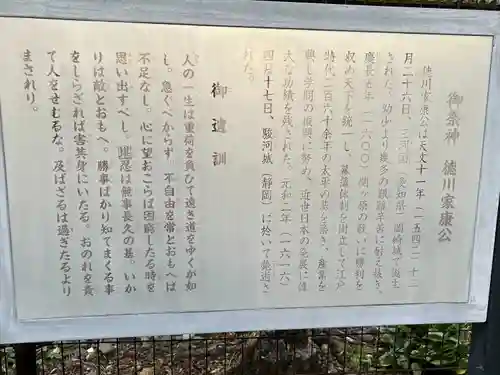 御祭神 徳川家康公
徳川家康公は天文十一年(一五四二)十二
月二十六日、三河国(愛知県)岡崎城で誕生
された。幼少より幾多の艱難辛苦に耐え抜き、
慶長五年(一六〇〇)関ヶ原の戦いに勝利を
収め天下を統一し、幕藩体制を樹立して江戸
時代二百六十余年の太平の基を築き、産業を
興し学問の振興に努め、近世日本の発展に偉
大な功績を残された。元和二年(一六一六)
四月十七日、駿河城(静岡)に於いて薨逝さ
れた。
御遺訓
人の一生は重荷を負ひて遠き道をゆくが如
し。急ぐべからず 不自由を常とおもへば
不足なし。心に望おこらば困窮したる時を
思い出すべし。堪忍は無事長久の基。いか
りは敵とおもへ。勝事ばかり知てまくる事
をしらざれば害其身にいたる。おのれを責
て人をせむるな。及ばざるは過ぎたるより
まされり。